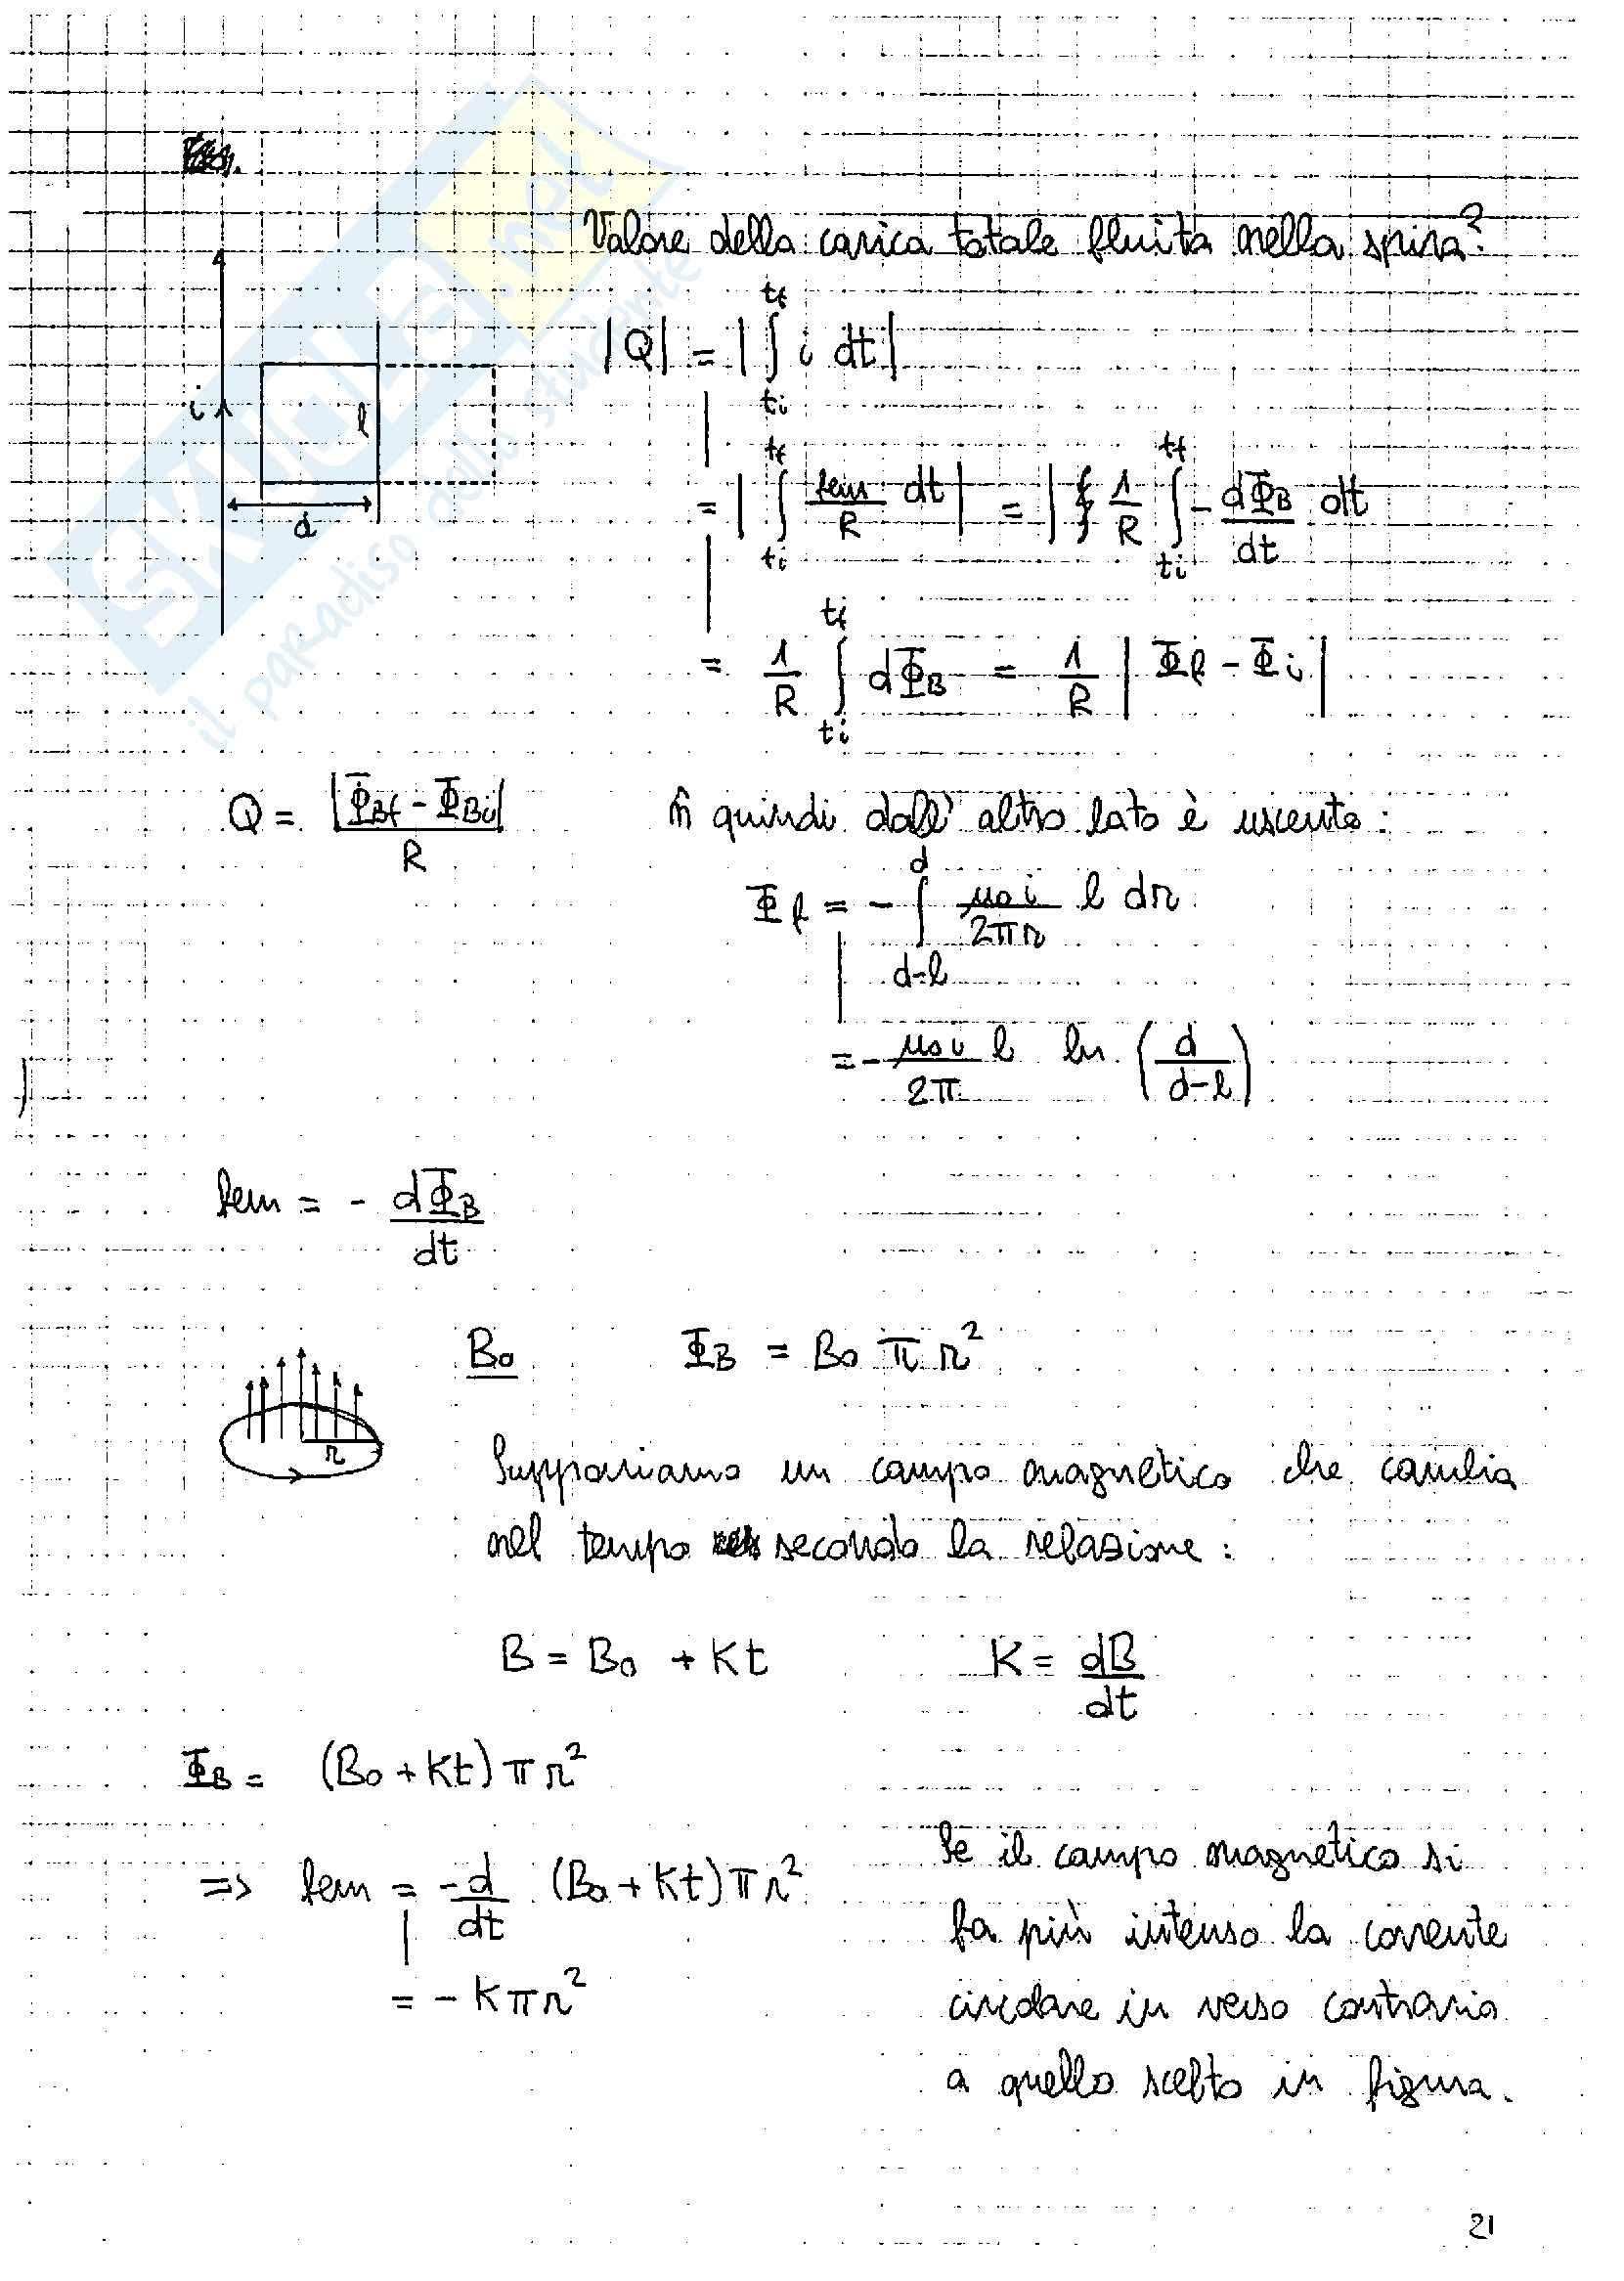 Valore della carica totale fluita nella spira?
|Q| = | ∫_{ti}^{tf} i dt |
i
l
d
= | ∫_{ti}^{tf} fem/R dt | = | 1/R ∫_{ti}^{tf} - dΦB/dt dt
= 1/R ∫_{ti}^{tf} dΦB = 1/R | Φf - Φi |
Q = |ΦBf - ΦBi| / R
n̂ quindi dall' altro lato è uscente:
Φf = - ∫_{d-l}^{d} μ0 i / 2πr l dr
= - μ0 i / 2π l ln (d / d-l)
fem = - dΦB/dt
B0
ΦB = B0 π r²
r
Supponiamo un campo magnetico che cambia
nel tempo secondo la relazione:
B = B0 + Kt
K = dB/dt
ΦB = (B0 + Kt) π r²
=> fem = - d/dt (B0 + Kt) π r²
= - K π r²
Se il campo magnetico si
fa più intenso la corrente
circolare in verso contrario
a quello scelto in figura.
21
SKUOLA.net
il paradiso dello studente